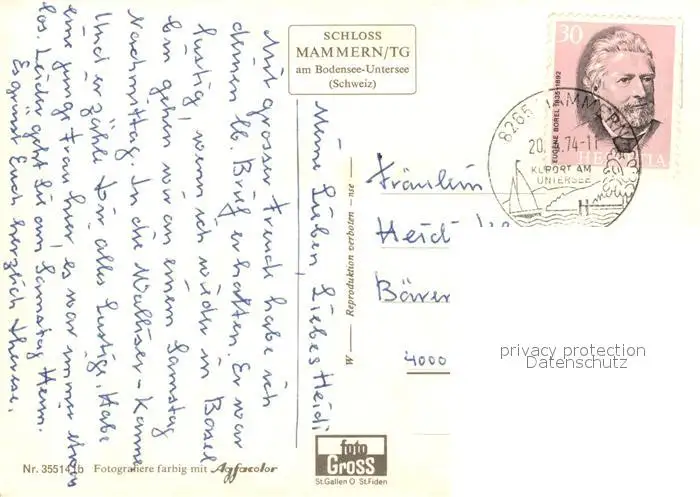 SCHLOSS
MAMMERN/TG
am Bodensee-Untersee
(Schweiz)
30
EUGENE BOREL 1835-1892
HELVETIA
8265 MAMMERN
74-11
KURORT AM
UNTERSEE
Meine Lieben, Liebes Heidi
Mit grosser Freude habe ich
deinen lb. Brief erhalten. Es war
lustig, wenn ich wieder in Basel
bin gehen wir an einem Samstag
Nachmittag. In die Walliser-Kanne
Und erzähle Dir alles Lustige. Habe
eine junge Frau hier, es war immer etwas
los. Leider geht Sie am Samstag Heim.
Es grüsst Euch herzlich Therese.
Fräulein
Heidi
4000
W — Reproduktion verboten — nse —
privacy protection
Datenschutz
foto
GROSS
St.Gallen O St.Fiden
Nr. 35514 b Fotografiere farbig mit Agfacolor